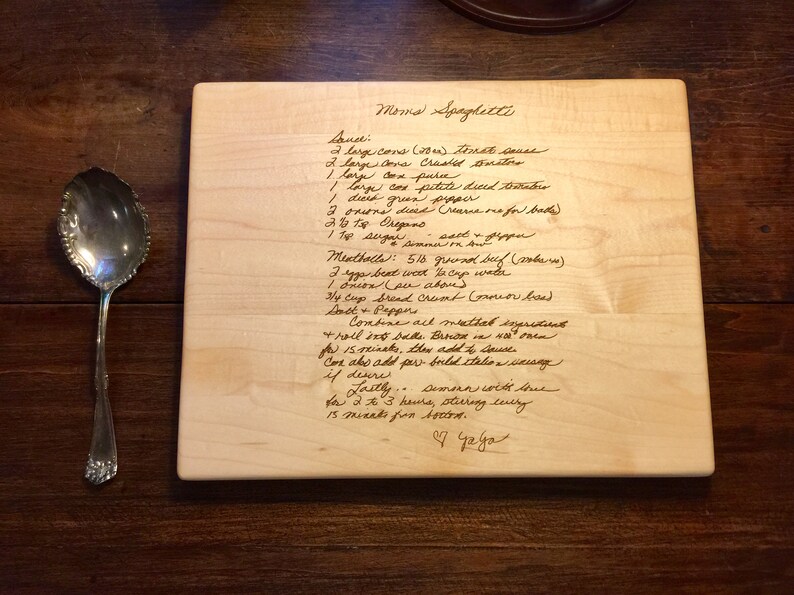 Moms Spaghetti
Sauce:
2 large cans (28oz) tomato sauce
2 large cans Crushed tomatoes
1 large can puree
1 large can petite diced tomatoes
1 diced green pepper
2 onions diced (reserve one for balls)
2 1/2 Tsp Oregano
1 Tsp sugar - salt & pepper
& simmer on low
Meatballs: 5 lb ground beef (makes 40)
2 eggs beat with 1/2 cup water
1 onion (see above)
3/4 cup bread crumb (more or less)
Salt & Peppers
Combine all meatball ingredients
& roll into balls. Brown in 400° oven
for 15 minutes, then add to sauce.
Can also add par-boiled italian sausage
if desire
Lastly .. simmer with love
for 2 to 3 hours, stirring every
15 minutes from bottom.
♡ YaYa